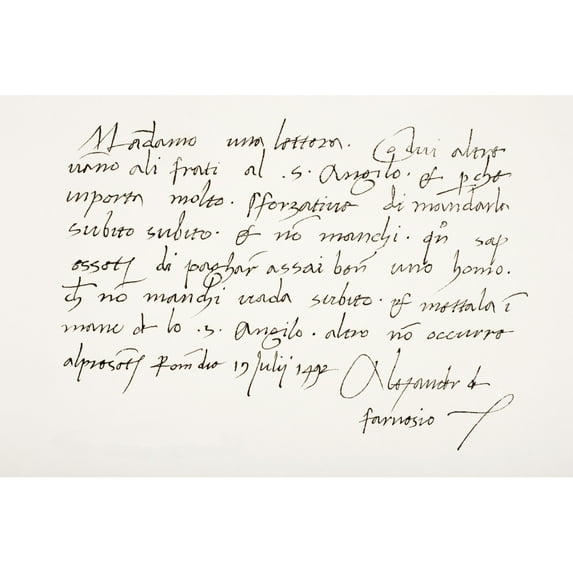 Mādamo una lettera. Cō dui altre
vāno ali frati al .S. Angilo. et pche
inporta molto. sforzative di mandarla
subito subito. et nō manchi. qñ sap
di paghar assai ben uno homo.
ch nō manchi vada subito. et mettala ī
mane d lo .S. Angilo. altro nō occurre
Rom die 19 Julij 1492 Alexander de
farnesio